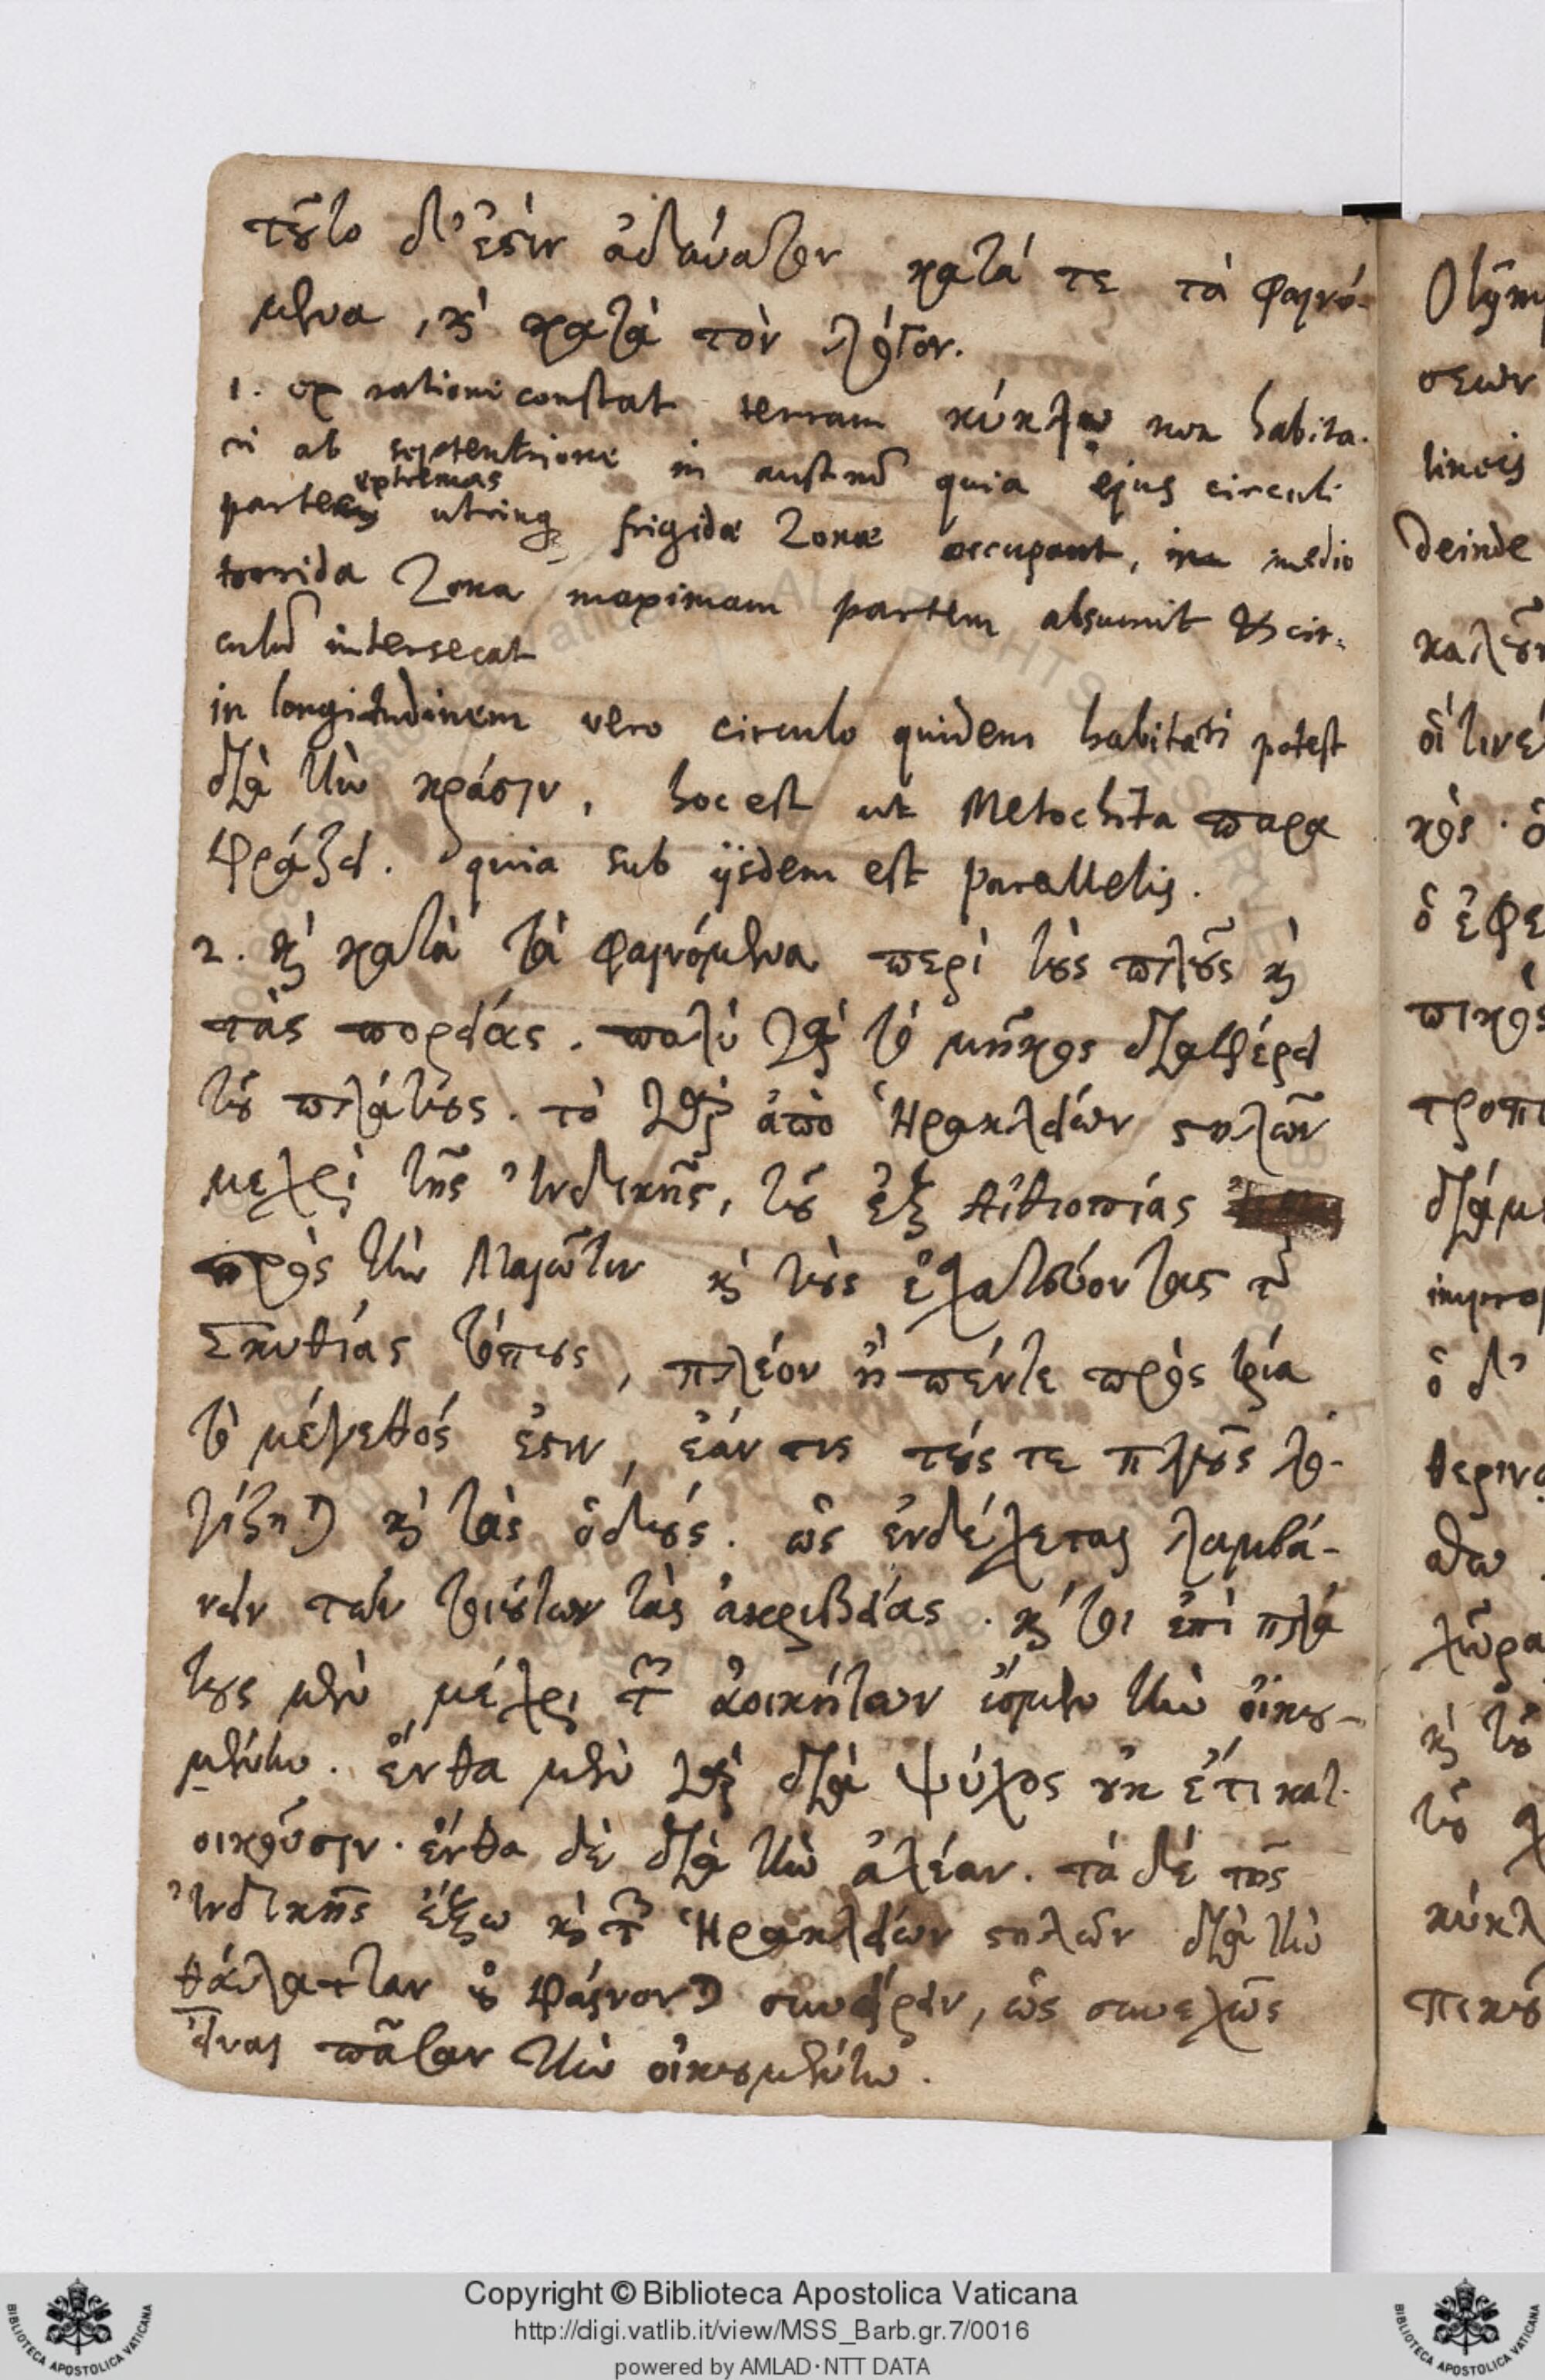 τοῦτο δ' ἐστὶν ἀδύνατον κατά τε τὰ φαινό-
μενα, καὶ κατὰ τὸν λόγον.
1. ex ratione constat terram κύκλῳ non habita-
ri ab septentrione in austrũ quia ejus circuli
partes extremas utrinq; frigidæ Zonæ occupant, in medio
torrida Zona maximam partem absumit & cir-
culũ intersecat
in longitudinem vero circulo quidem habitari potest
διὰ τὴν κρᾶσιν, hoc est ut Metochita παρα
φράζει. quia sub ijsdem est parallelis.
2. καὶ κατὰ τὰ φαινόμενα περὶ τοὺς πλοῦς καὶ
τὰς πορείας. πολὺ γὰρ τὸ μῆκος διαφέρει
τοῦ πλάτους. τὸ γὰρ ἀπὸ Ἡρακλείων στηλῶν
μεχρὶ τῆς Ἰνδικῆς, τοῦ ἐξ Αἰθιοπίας
πρὸς τὴν Μαιῶτιν καὶ τοὺς ἐσχατεύοντας τῆς
Σκυθίας τόπους, πλέον ἢ πέντε πρὸς τρία
τὸ μέγεθός ἐστιν, ἐάν τις τούς τε πλοῦς λο-
γίζηται καὶ τὰς ὁδούς. ὡς ἐνδέχεται λαμβά-
νειν τῶν τοιούτων τὰς ἀκριβείας. καί τοι ἐπὶ πλά
τους μὲν μέχρι τῶν ἀοικήτων ἴσμεν τὴν οἰκου-
μένην. ἔνθα μὲν γὰρ διὰ ψύχος οὐκ ἔτι κατ-
οικοῦσιν. ἔνθα δὲ διὰ τὴν ἀλέαν. τὰ δὲ τῆς
Ἰνδικῆς ἔξω καὶ τῶν Ἡρακλείων στηλῶν διὰ τὴν
θάλατταν οὐ φαίνονται συνείρειν, ὡς συνεχῶς
εἶναι πᾶσαν τὴν οἰκουμένην.
Copyright © Biblioteca Apostolica Vaticana
http://digi.vatlib.it/view/MSS_Barb.gr.7/0016
powered by AMLAD·NTT DATA